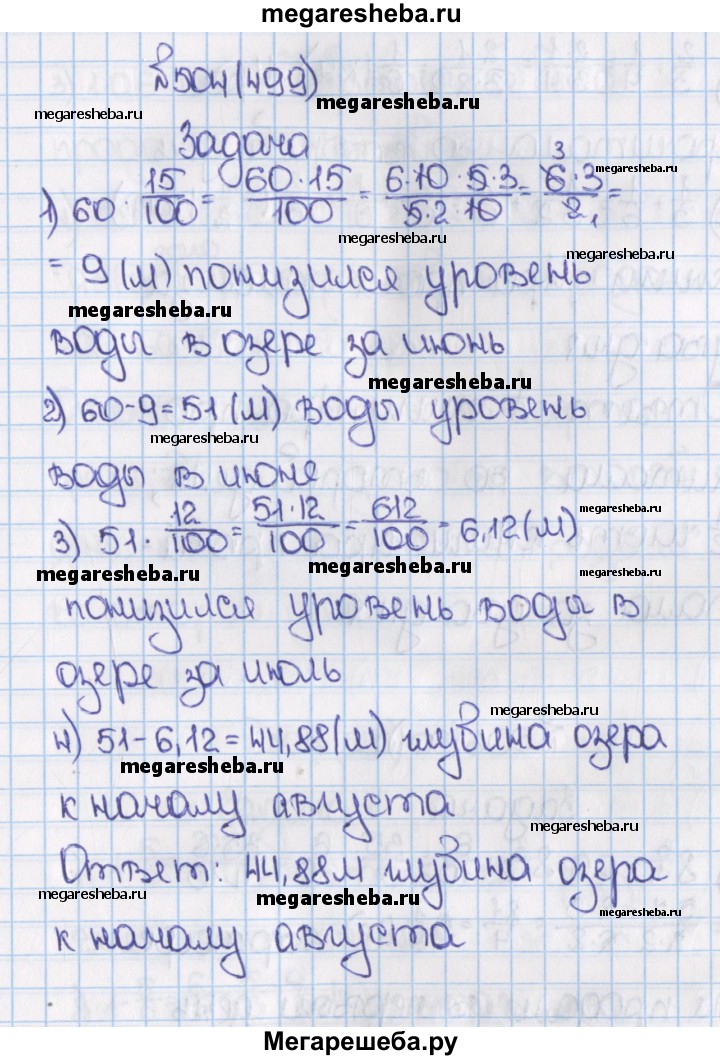 megaresheba.ru
№504(499)
megaresheba.ru
megaresheba.ru
Задача
1) 60 · 15/100 = 60·15/100 = 6·10·5·3/5·2·10 = 6·3/2 =
3
1
megaresheba.ru
megaresheba.ru
= 9 (м) понизился уровень
megaresheba.ru
воды в озере за июнь
megaresheba.ru
2) 60-9=51 (м) воды уровень
megaresheba.ru
воды в июне
megaresheba.ru
3) 51 · 12/100 = 51·12/100 = 612/100 = 6,12(м)
megaresheba.ru
megaresheba.ru
megaresheba.ru
понизился уровень воды в
озере за июль
megaresheba.ru
4) 51-6,12=44,88(м) глубина озера
megaresheba.ru
к началу августа
megaresheba.ru
Ответ: 44,88м глубина озера
megaresheba.ru
megaresheba.ru
megaresheba.ru
к началу августа
Мегарешеба.ру